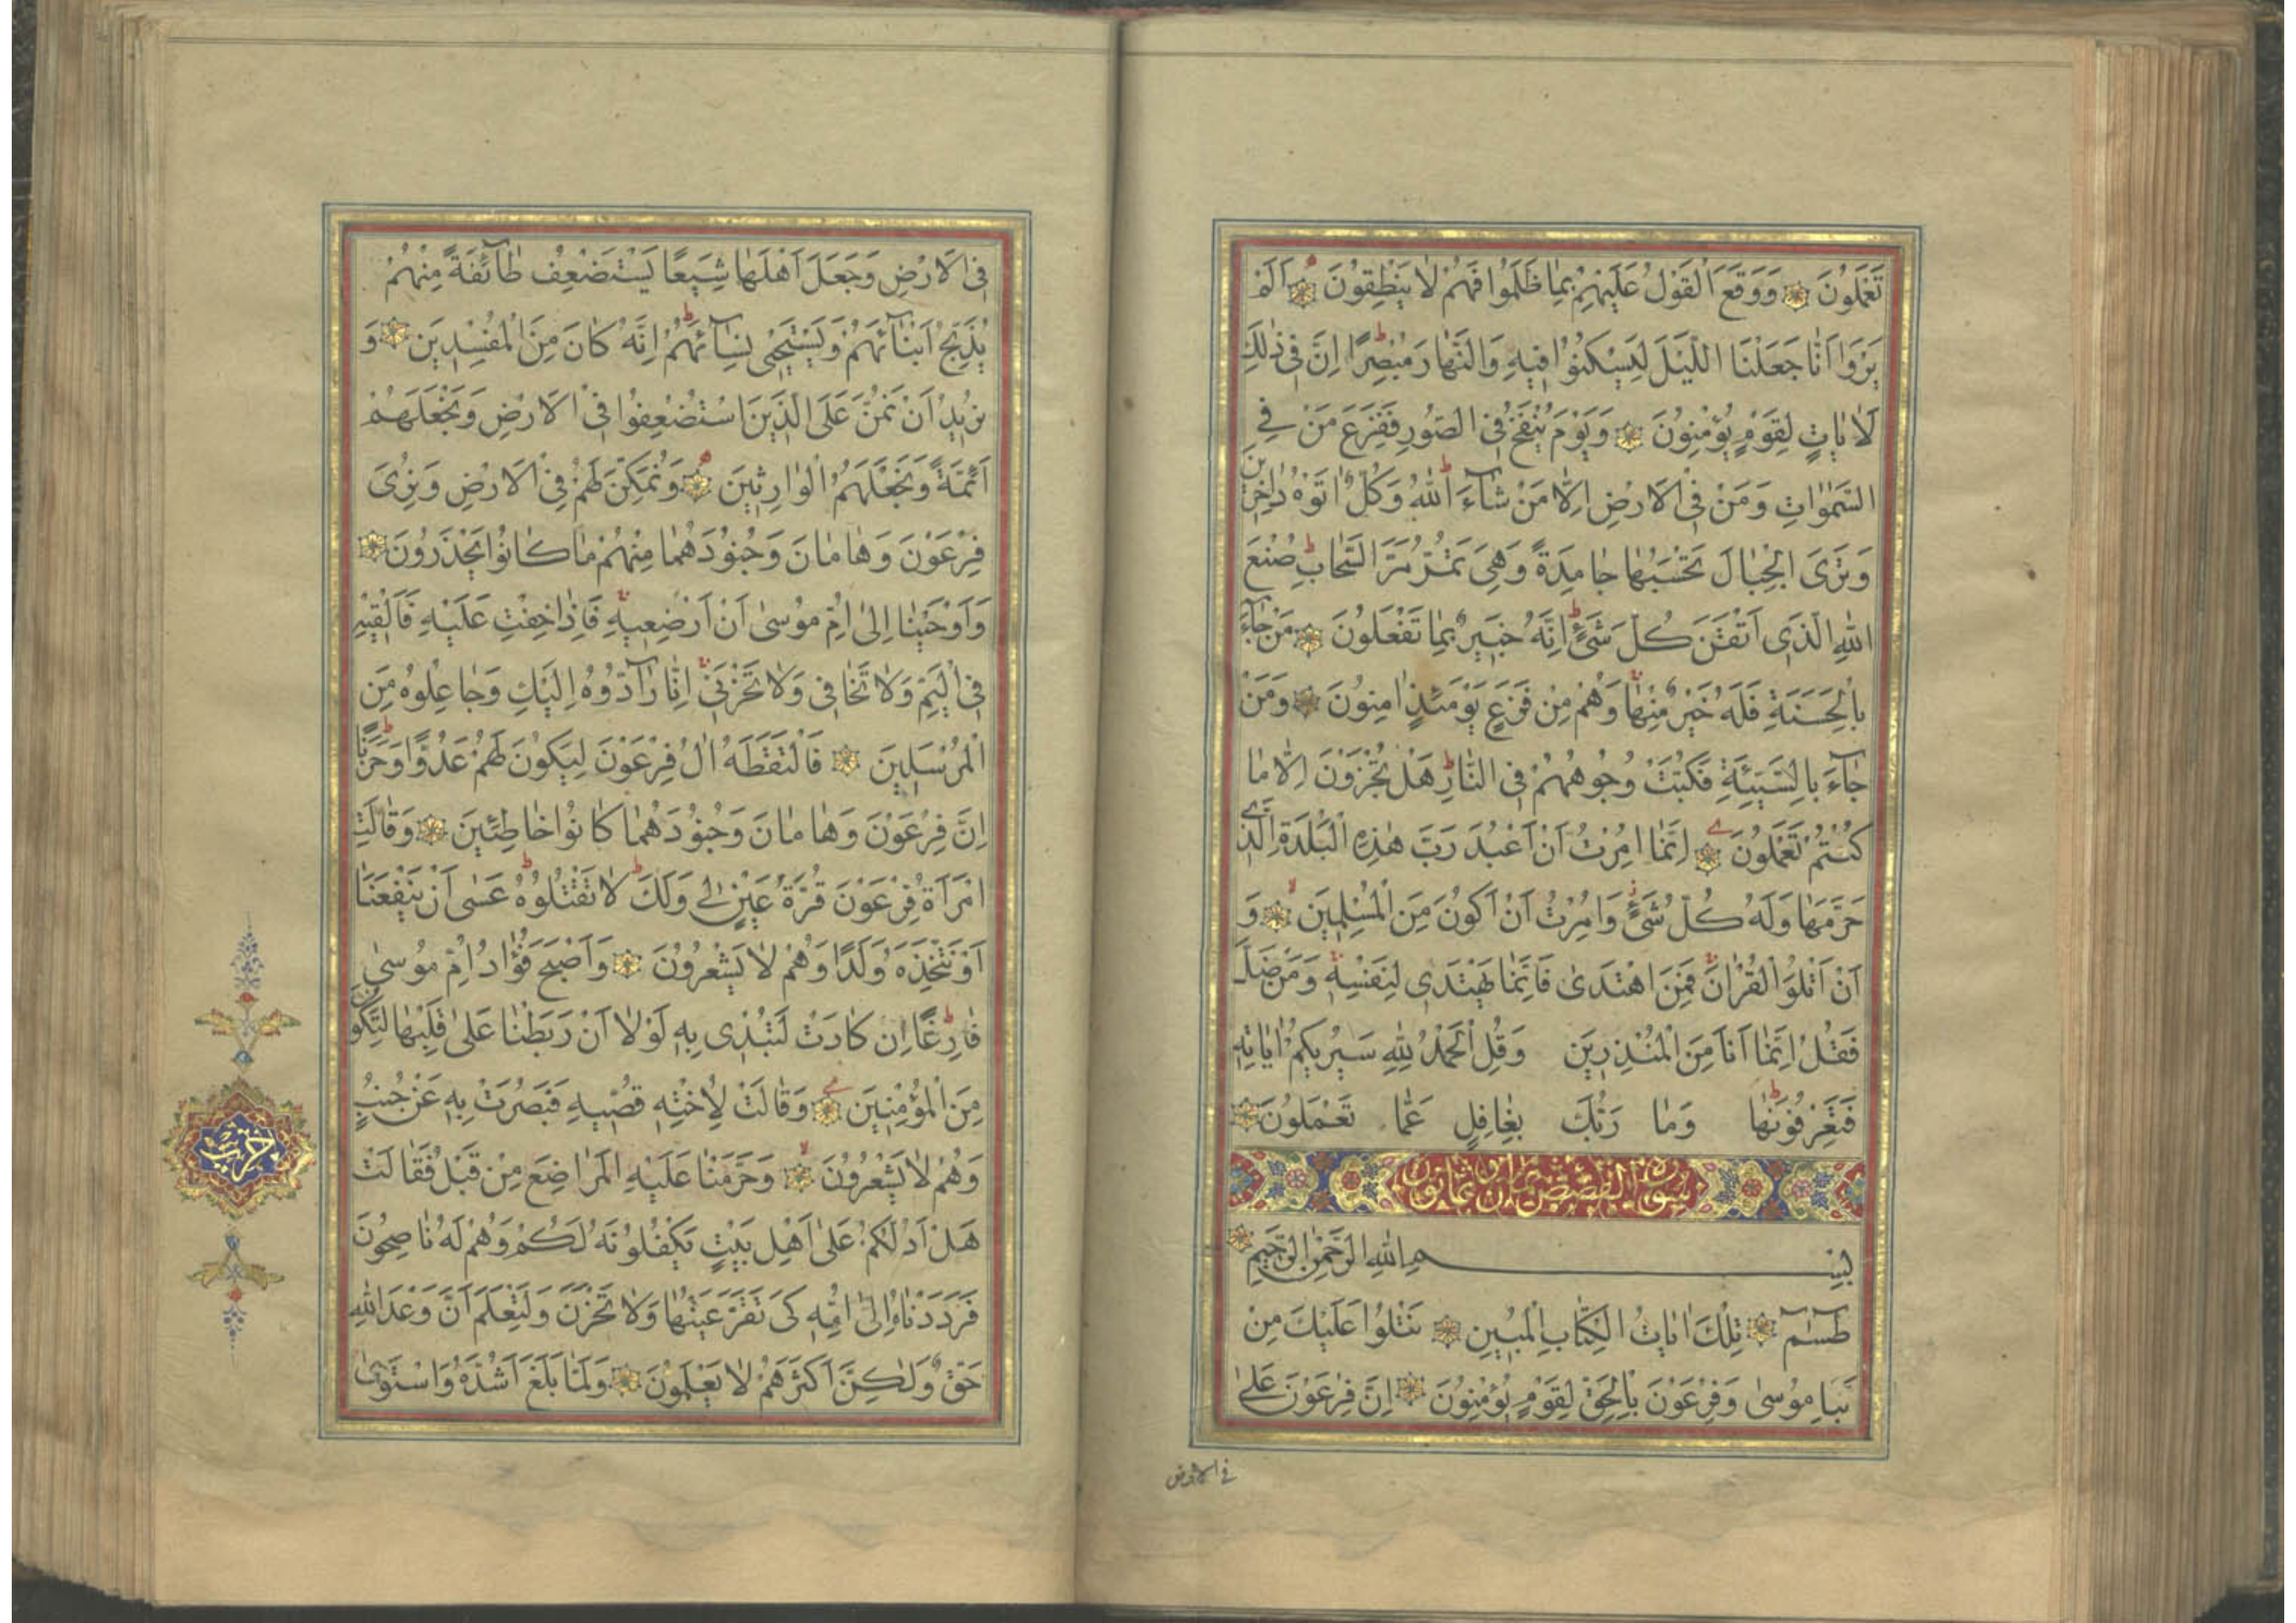 تَعْمَلُونَ وَوَقَعَ الْقَوْلُ عَلَيْهِمْ بِمَا ظَلَمُوا فَهُمْ لَا يَنْطِقُونَ اَلَمْ
يَرَوْا اَنَّا جَعَلْنَا اللَّيْلَ لِيَسْكُنُوا فِيهِ وَالنَّهَارَ مُبْصِرًا اِنَّ فِى ذٰلِكَ
لَاٰيَاتٍ لِقَوْمٍ يُؤْمِنُونَ وَيَوْمَ يُنْفَخُ فِى الصُّورِ فَفَزِعَ مَنْ فِى
السَّمٰوَاتِ وَمَنْ فِى الْاَرْضِ اِلَّا مَنْ شَآءَ اللّٰهُ وَكُلٌّ اَتَوْهُ دَاخِرِينَ
وَتَرَى الْجِبَالَ تَحْسَبُهَا جَامِدَةً وَهِىَ تَمُرُّ مَرَّ السَّحَابِ صُنْعَ
اللّٰهِ الَّذِى اَتْقَنَ كُلَّ شَىْءٍ اِنَّهُ خَبِيرٌ بِمَا تَفْعَلُونَ مَنْ جَآءَ
بِالْحَسَنَةِ فَلَهُ خَيْرٌ مِنْهَا وَهُمْ مِنْ فَزَعٍ يَوْمَئِذٍ اٰمِنُونَ وَمَنْ
جَآءَ بِالسَّيِّئَةِ فَكُبَّتْ وُجُوهُهُمْ فِى النَّارِ هَلْ تُجْزَوْنَ اِلَّا مَا
كُنْتُمْ تَعْمَلُونَ اِنَّمَا اُمِرْتُ اَنْ اَعْبُدَ رَبَّ هٰذِهِ الْبَلْدَةِ الَّذِى
حَرَّمَهَا وَلَهُ كُلُّ شَىْءٍ وَاُمِرْتُ اَنْ اَكُونَ مِنَ الْمُسْلِمِينَ وَ
اَنْ اَتْلُوَ الْقُرْاٰنَ فَمَنِ اهْتَدَىٰ فَاِنَّمَا يَهْتَدِى لِنَفْسِهِ وَمَنْ ضَلَّ
فَقُلْ اِنَّمَا اَنَا مِنَ الْمُنْذِرِينَ وَقُلِ الْحَمْدُ لِلّٰهِ سَيُرِيكُمْ اٰيَاتِهِ
فَتَعْرِفُونَهَا وَمَا رَبُّكَ بِغَافِلٍ عَمَّا تَعْمَلُونَ
سورة القصص ثمانون
بِسْمِ اللّٰهِ الرَّحْمٰنِ الرَّحِيمِ
طٰسٓمٓ تِلْكَ اٰيَاتُ الْكِتَابِ الْمُبِينِ نَتْلُوا عَلَيْكَ مِنْ
نَبَاِ مُوسٰى وَفِرْعَوْنَ بِالْحَقِّ لِقَوْمٍ يُؤْمِنُونَ اِنَّ فِرْعَوْنَ عَلَىٰ
فى الارض
فِى الْاَرْضِ وَجَعَلَ اَهْلَهَا شِيَعًا يَسْتَضْعِفُ طَآئِفَةً مِنْهُمْ
يُذَبِّحُ اَبْنَآئَهُمْ وَيَسْتَحْيِى نِسَآئَهُمْ اِنَّهُ كَانَ مِنَ الْمُفْسِدِينَ وَ
نُرِيدُ اَنْ نَمُنَّ عَلَى الَّذِينَ اسْتُضْعِفُوا فِى الْاَرْضِ وَنَجْعَلَهُمْ
اَئِمَّةً وَنَجْعَلَهُمُ الْوَارِثِينَ وَنُمَكِّنَ لَهُمْ فِى الْاَرْضِ وَنُرِىَ
فِرْعَوْنَ وَهَامَانَ وَجُنُودَهُمَا مِنْهُمْ مَا كَانُوا يَحْذَرُونَ
وَاَوْحَيْنَا اِلٰى اُمِّ مُوسٰى اَنْ اَرْضِعِيهِ فَاِذَا خِفْتِ عَلَيْهِ فَاَلْقِيهِ
فِى الْيَمِّ وَلَا تَخَافِى وَلَا تَحْزَنِى اِنَّا رَآدُّوهُ اِلَيْكِ وَجَاعِلُوهُ مِنَ
الْمُرْسَلِينَ فَالْتَقَطَهُ اٰلُ فِرْعَوْنَ لِيَكُونَ لَهُمْ عَدُوًّا وَحَزَنًا
اِنَّ فِرْعَوْنَ وَهَامَانَ وَجُنُودَهُمَا كَانُوا خَاطِئِينَ وَقَالَتِ
امْرَاَةُ فِرْعَوْنَ قُرَّةُ عَيْنٍ لِى وَلَكَ لَا تَقْتُلُوهُ عَسٰى اَنْ يَنْفَعَنَا
اَوْ نَتَّخِذَهُ وَلَدًا وَهُمْ لَا يَشْعُرُونَ وَاَصْبَحَ فُؤَادُ اُمِّ مُوسٰى
فَارِغًا اِنْ كَادَتْ لَتُبْدِى بِهِ لَوْلَا اَنْ رَبَطْنَا عَلٰى قَلْبِهَا لِتَكُونَ
مِنَ الْمُؤْمِنِينَ وَقَالَتْ لِاُخْتِهِ قُصِّيهِ فَبَصُرَتْ بِهِ عَنْ جُنُبٍ
وَهُمْ لَا يَشْعُرُونَ وَحَرَّمْنَا عَلَيْهِ الْمَرَاضِعَ مِنْ قَبْلُ فَقَالَتْ
هَلْ اَدُلُّكُمْ عَلٰى اَهْلِ بَيْتٍ يَكْفُلُونَهُ لَكُمْ وَهُمْ لَهُ نَاصِحُونَ
فَرَدَدْنَاهُ اِلٰى اُمِّهِ كَىْ تَقَرَّ عَيْنُهَا وَلَا تَحْزَنَ وَلِتَعْلَمَ اَنَّ وَعْدَ اللّٰهِ
حَقٌّ وَلٰكِنَّ اَكْثَرَهُمْ لَا يَعْلَمُونَ وَلَمَّا بَلَغَ اَشُدَّهُ وَاسْتَوٰى
حزب